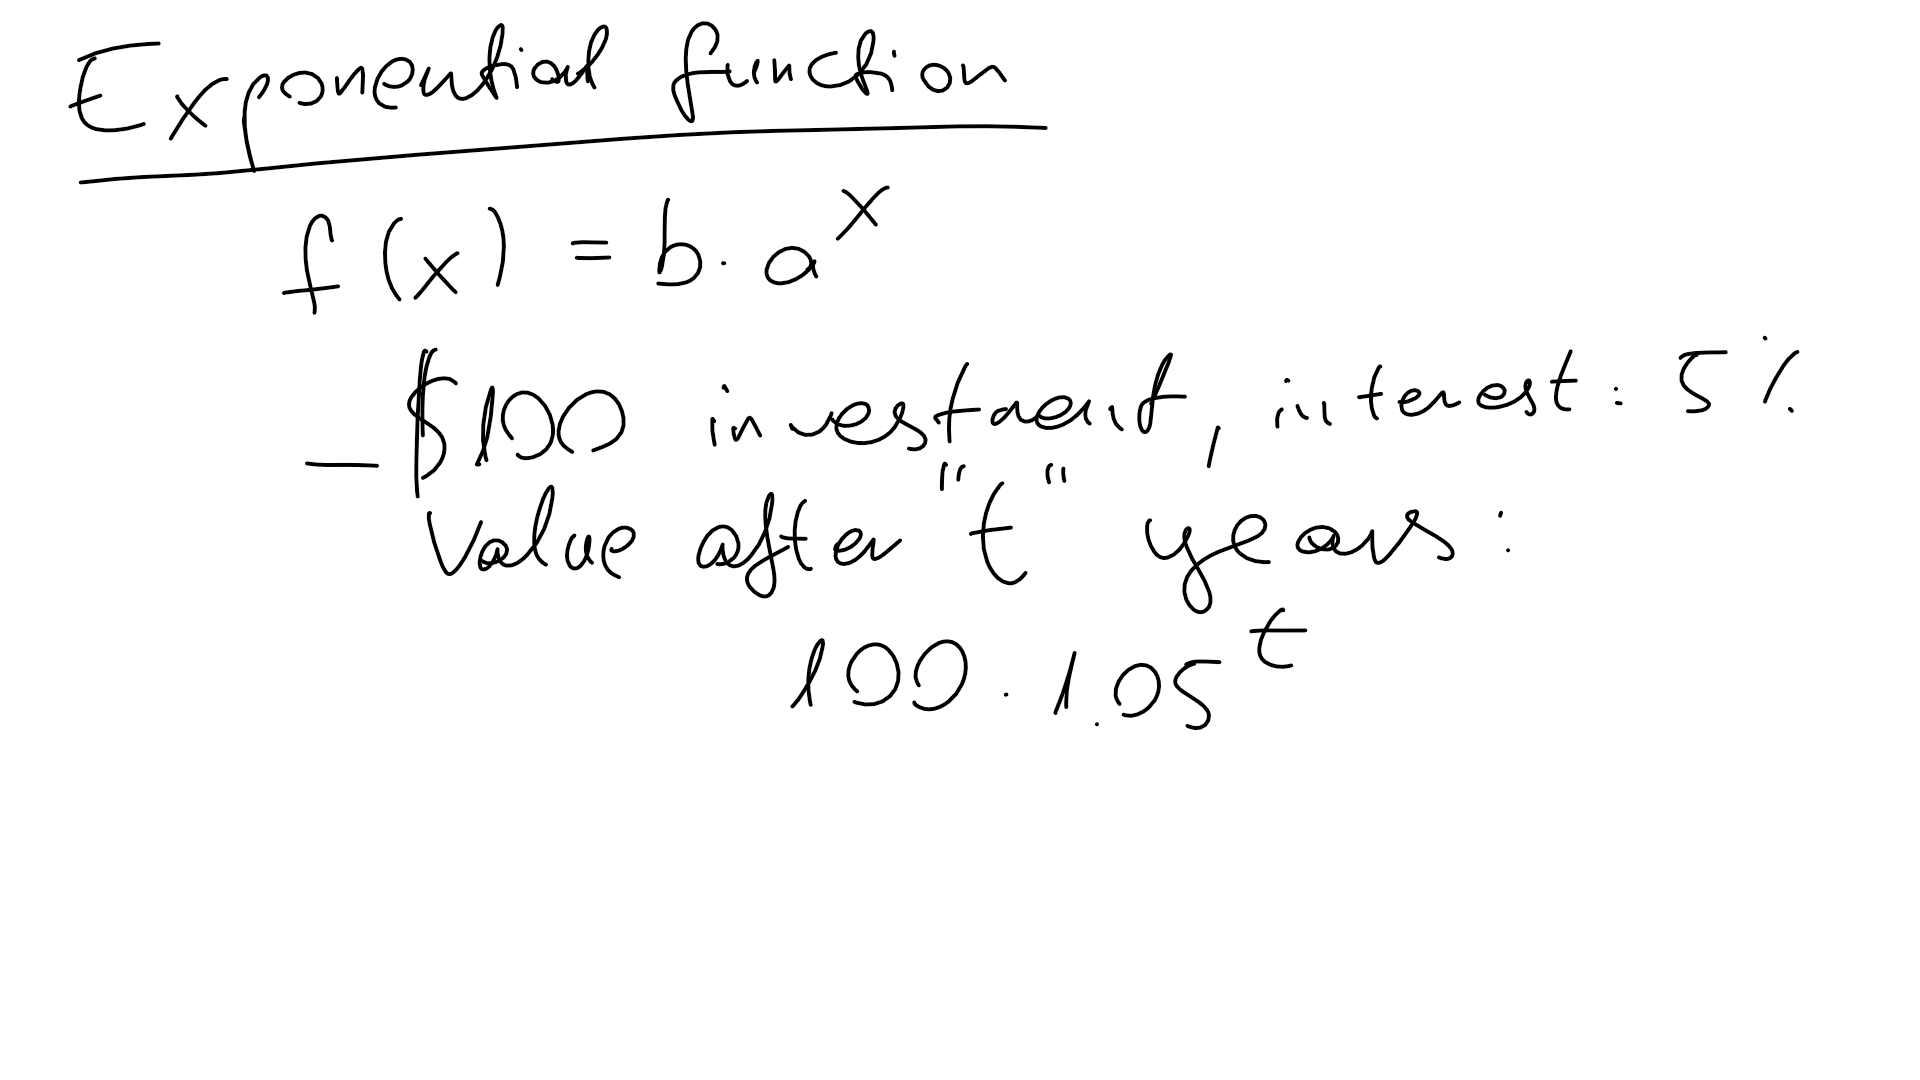 Exponential function
f(x) = b · a^x
— $100 investment, interest: 5%
Value after "t" years:
100 · 1.05^t